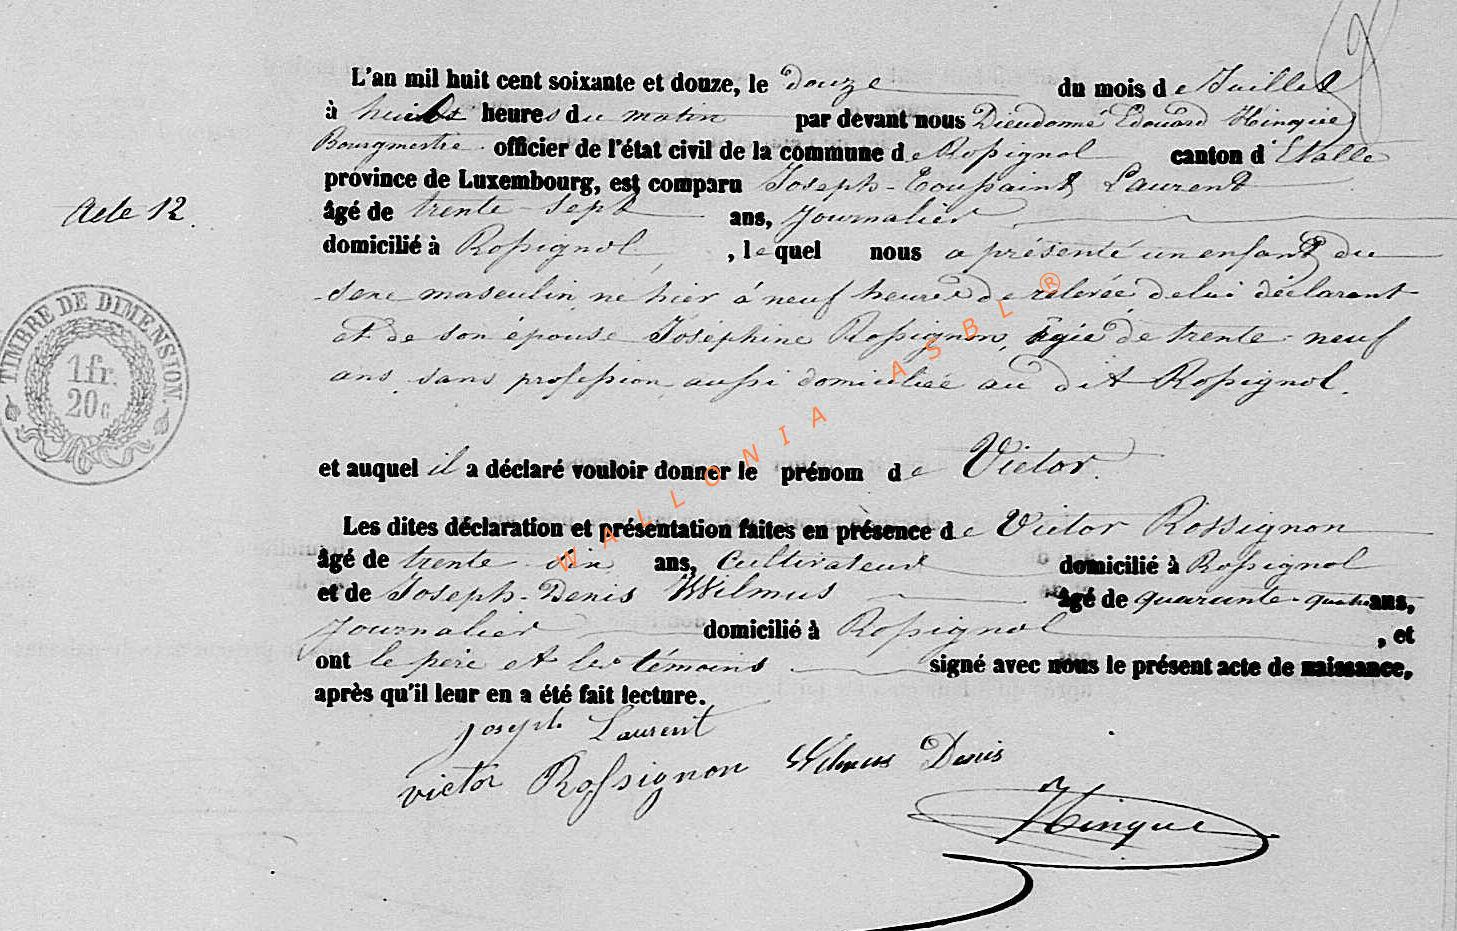 L'an mil huit cent soixante et douze, le douze du mois de Juillet
à huit heures du matin par devant nous Dieudonné Edouard Hinque
Bourgmestre officier de l'état civil de la commune de Rossignol canton d'Etalle
province de Luxembourg, est comparu Joseph-Toussaint Laurent
Acte 12.
âgé de trente-sept ans, Journalier
domicilié à Rossignol, lequel nous a présenté un enfant du
sexe masculin né hier à neuf heures de relevée de lui déclarant
et de son épouse Joséphine Rossignon, âgée de trente-neuf
ans, sans profession, aussi domiciliée au dit Rossignol.
TIMBRE DE DIMENSION
1 fr.
20 c
et auquel il a déclaré vouloir donner le prénom de Victor.
Les dites déclaration et présentation faites en présence de Victor Rossignon
âgé de trente-six ans, Cultivateur domicilié à Rossignol
et de Joseph-Denis Wilmus âgé de quarante-quatre ans,
Journalier domicilié à Rossignol, et
ont le père et les témoins signé avec nous le présent acte de naissance,
après qu'il leur en a été fait lecture.
Joseph Laurent
victor Rossignon Wilmus Denis
Hinque
WALLONIA ASBL ®